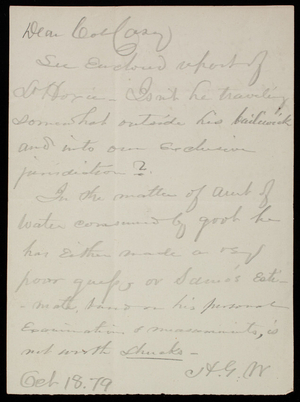 Dear Col Casey
See enclosed report of
Dr Hoxie - Isn't he traveling
somewhat outside his bailiwick
and into our exclusive
jurisdiction?
In the matter of amt of
water consumed by govt he
has either made a very
poor guess, or Sam's esti-
-mate, based on his personal
Examinations & measurements, is
not worth shucks -
H.G.W
Oct 18.79